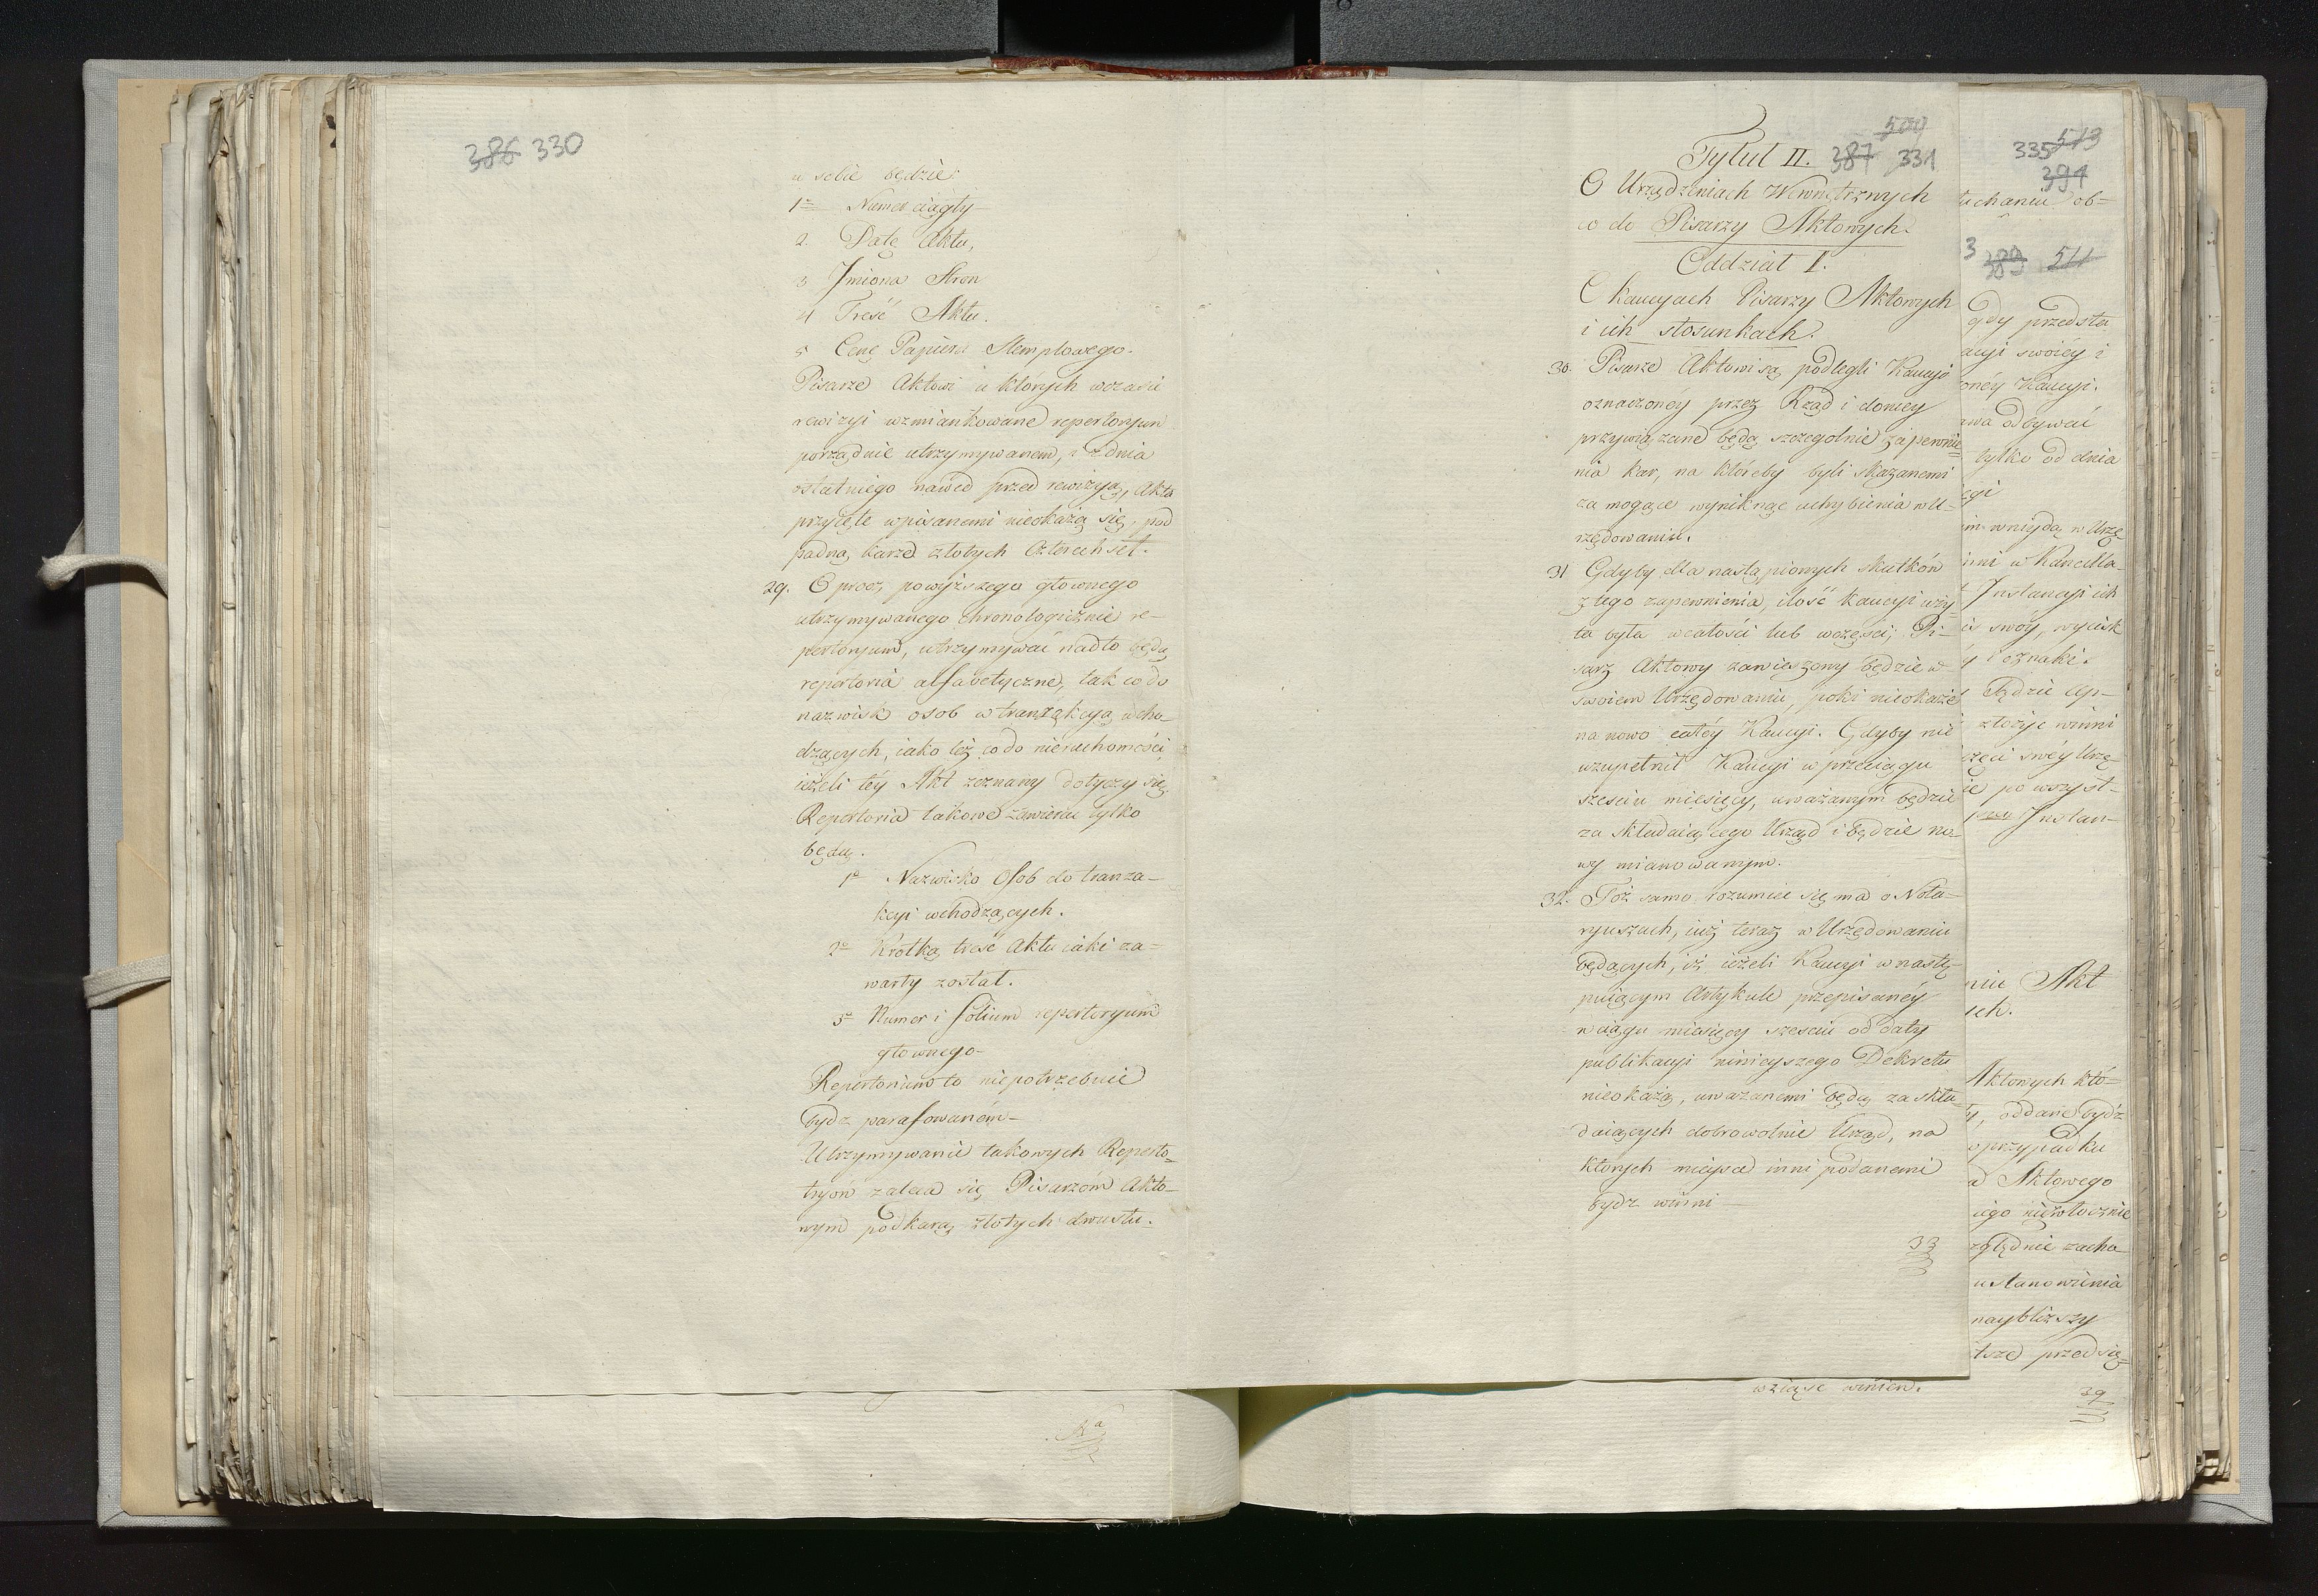 386 330
w sobie będzie:
1º Numer ciągły
2. Datę Aktu,
3 Jmiona Stron
4 Treść Aktu.
5 Cenę Papieru Stemplowego.
Pisarze Aktowi u których wczasie
rewizyi wzmiankowane repertoryum
porządnie utrzymywanem, i zdnia
ostatniego nawed przed rewizyą, Akta
przyięte wpisanemi nieokażą się, pod
padną karze złotych czterechset.
29. Oprocz powyższego głownego
utrzymywanego chronologicznie re-
pertoryum, utrzymywać nadto będą
repertoria alfabetyczne, tak co do
nazwisk osob w tranzakcyą wcho-
dzących, iako też co do nieruchomości,
ieżeli téy Akt zeznany dotyczy się.
Repertoria takowe zawierać tylko
będą.
1º Nazwisko Osob do tranza-
kcyi wchodzących.
2º Krotką treść Aktu iaki za-
warty został.
3º Numer i folium repertoryum
głownego-
Repertorium to niepotrzebuie
bydz parafowaném-
Utrzymywanie takowych Reperto-
ryów zaleca się Pisarzom Akto-
wym pod karą złotych dwustu.
509
Tytuł II. 387 331
O Urządzeniach Wewnętrznych
co do Pisarzy Aktowych.
Oddział I.
O Kaucyach Pisarzy Aktowych
i ich stosunkach.
30. Pisarze Aktowi są podlegli Kaucyi
oznaczonéy przez Rząd i doniey
przywiązane będą szczegolnie zapewnie=
nia kar, na któreby byli skazanemi
za mogące wyniknąć uchybienia w U-
rzędowaniu.
31 Gdyby dla nastąpionych skutków
z tego zapewnienia, ilość kaucyi uży
ta była wcałości lub wczęści, Pi-
sarz Aktowy zawieszony będzie w
swoiem Urzędowaniu, poki nieokaże
na nowo całéy Kaucyi. Gdyby nie
uzupełnił Kaucyi w przeciągu
sześciu miesięcy, uważanym będzie
za składaiącego Urząd i będzie no-
wy mianowanym.
32. Toż samo rozumieć się ma o Nota-
ryuszach, iuż teraz w Urzędowaniu
będących, iż ieżeli Kaucyi w nastę-
puiącym Artykule przepisanéy
w ciągu miesięcy sześciu od daty
publikacyi ninieyszego Dekretu
nieokażą, uważanemi będą za skła-
daiących dobrowolnie Urząd, na
ktorych mieysce inni podanemi
bydz winni —
33
513
335
394
uchaniu ob=
3 389 511
gdy przedsta
acyi swoiéy i
onéy Kaucyi.
awa odbywać
tylko od dnia
im wniydą w Urzę
inni w Kancella-
Instancyi ich
is swóy, wycisk
y i oznaki.
Będzie Up-
złożyć winni
części swéy Urzę-
ie po wszyst-
Instan-
nie Akt
ich.
Aktowych któ=
ty, oddane bydź
przypadku
a Aktowego
iego niezwłocznie
zględnie zacho
ustanowienia
naybliższy
przedsię-
wziąść winien.
39